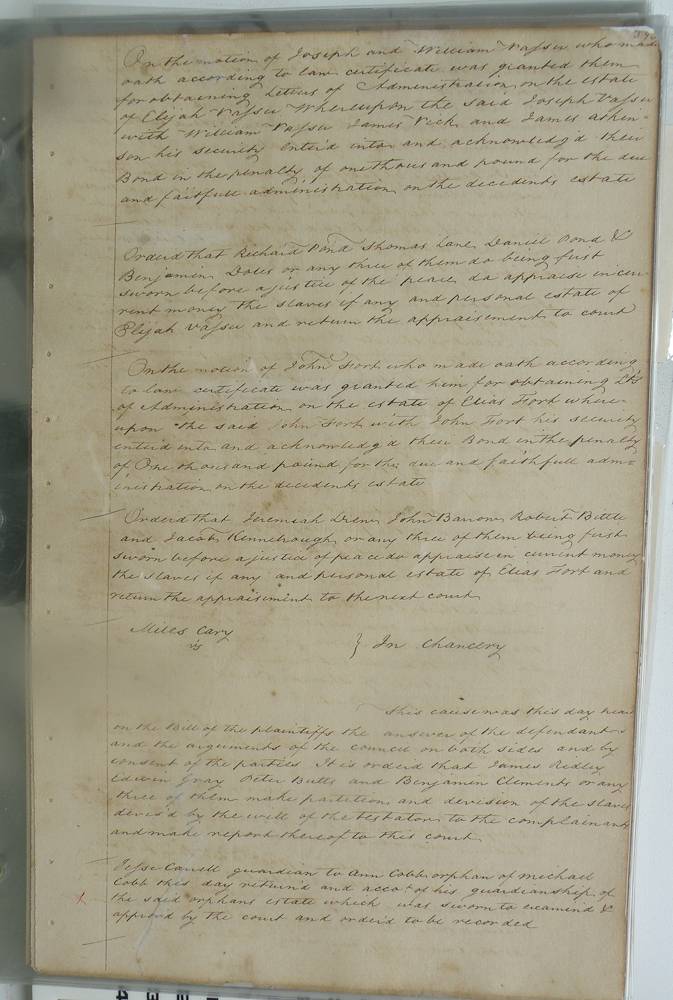 On the motion of Joseph and William Vasser who made
oath according to law certificate was granted them
for obtaining Letters of Administration on the estate
of Elijah Vasser Whereupon the said Joseph Vasser
with William Vasser James Vick and James Atkin=
son his security enterd into and acknowledg'd their
Bond in the penalty of one thousand pound for the due
and faitfull administration on the decedents estate
Orderd that Richard Pond Thomas Lane Daniel Pond &
Benjamin Doles or any three of them do being first
sworn before a justice of the peace do appraise in cur
rent money the slaves if any and personal estate of
Elijah Vasser and return the appraisement to court
On the motion of John Fort who made oath according
to law certificate was granted him for obtaining
of Administration on the estate of Elias Fort where=
upon the said John Fort with John Fort his security
enterd into and acknowledg'd their Bond in the penalty
of One thousand pound for the due and faithfull admi=
inistration on the decedents estate
Orderd that Jeremiah Drew John Barrow Robert Bittle
and Jacob or any three of them being first
sworn before a justice of peace do appraise in current money
the slaves if any and personal estate of Elias Fort and
return the appraisement to the next court
Miles Cary
vs
} In Chancery
This cause was this day hear
on the Bill of the plaintiffs the answer of the defendant
and the arguments of the council on both sides and by
consent of the parties It is orderd that James Ridley
Edwin Gray Peter Butts and Benjamin Clements or any
three of them make partition and devision of the slaves
devis'd by the will of the testator to the complainants
and make report thereof to this court
Jesse guardian to Ann Cobb orphan of Michael
Cobb this day returnd and accot of his guardianship of
x the said orphans estate which was sworn to examind &
approvd by the court and orderd to be recorded